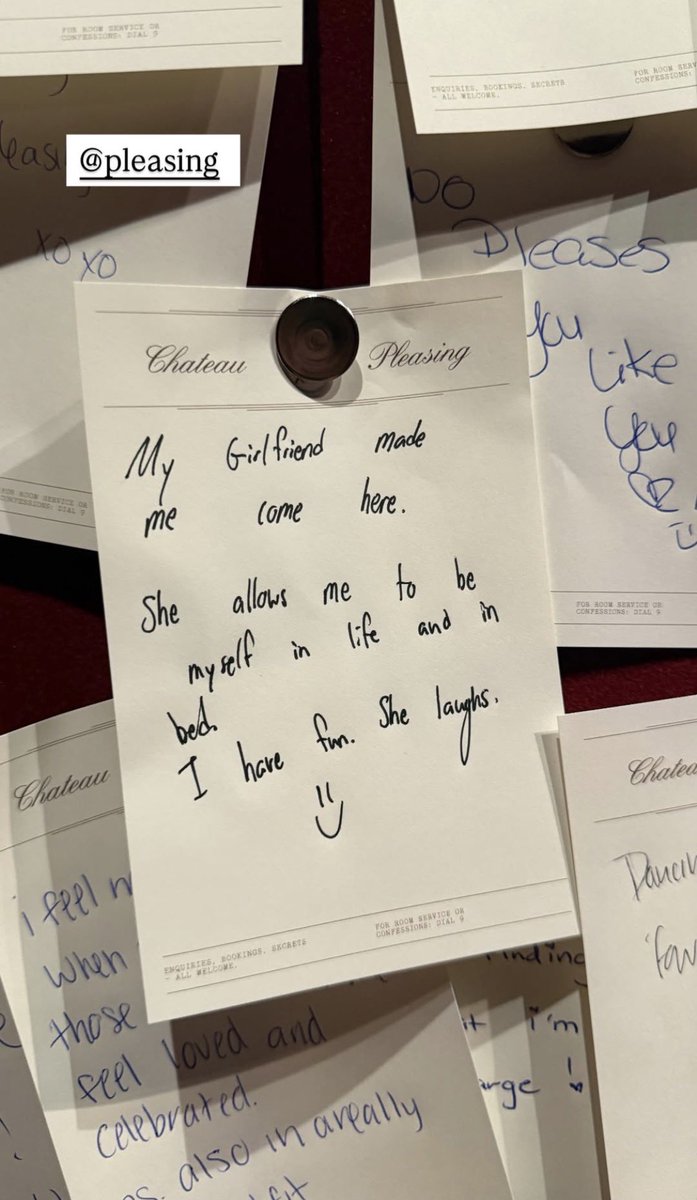 FOR ROOM SERVICE OR
CONFESSIONS: DIAL 9
ENQUIRIES, BOOKINGS, SECRETS
- ALL WELCOME.
FOR ROOM SERV
CONFESSIONS:
@pleasing
xo xo
DO
Pleases
you
Like
you
Chateau Pleasing
My Girlfriend made
me come here.
She allows me to be
myself in life and in
bed.
I have fun. She laughs.
ENQUIRIES, BOOKINGS, SECRETS
- ALL WELCOME.
FOR ROOM SERVICE OR
CONFESSIONS: DIAL 9
FOR ROOM SERVICE OR
CONFESSIONS: DIAL 9
FOR ROOM SERVICE OR
CONFESSIONS: DIAL 9
Chateau
i feel
when
those
feel loved and
celebrated.
also in a really
fit
i'm
Chatea
Dancin